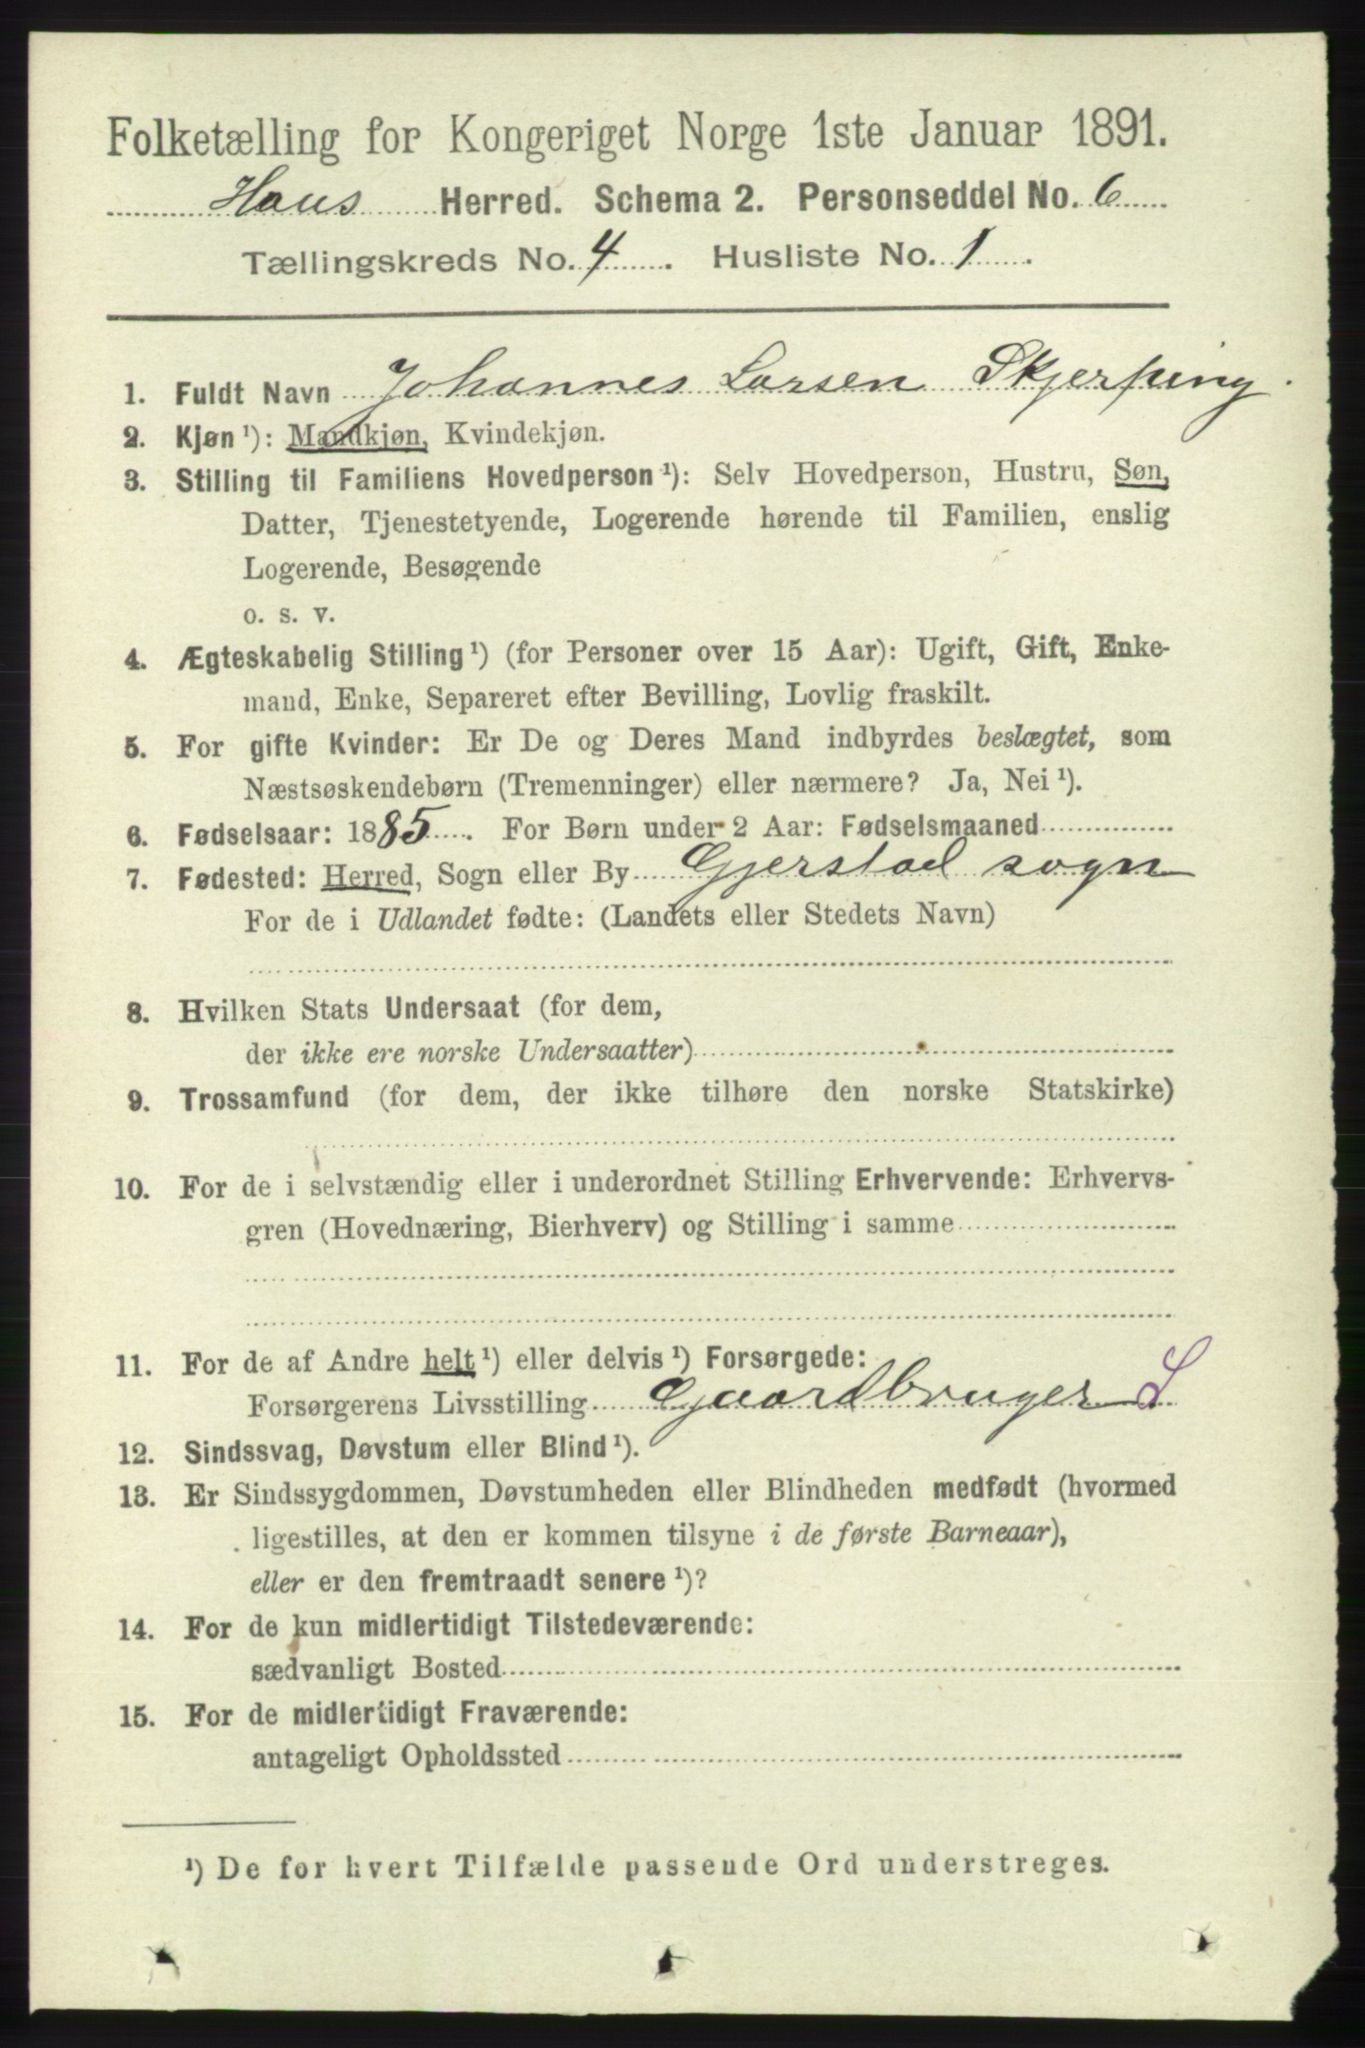 Folketælling for Kongeriget Norge 1ste Januar 1891.
Haus Herred. Schema 2. Personseddel No. 6
Tællingskreds No. 4. Husliste No. 1.
1. Fuldt Navn Johannes Larsen Skjerping.
2. Kjøn¹): Mandkjøn, Kvindekjøn.
3. Stilling til Familiens Hovedperson¹): Selv Hovedperson, Hustru, Søn,
Datter, Tjenestetyende, Logerende hørende til Familien, enslig
Logerende, Besøgende
o. s. v.
4. Ægteskabelig Stilling¹) (for Personer over 15 Aar): Ugift, Gift, Enke-
mand, Enke, Separeret efter Bevilling, Lovlig fraskilt.
5. For gifte Kvinder: Er De og Deres Mand indbyrdes beslægtet, som
Næstsøskendebørn (Tremenninger) eller nærmere? Ja, Nei¹).
6. Fødselsaar: 1885. For Børn under 2 Aar: Fødselsmaaned
7. Fødested: Herred, Sogn eller By Gjerstad sogn
For de i Udlandet fødte: (Landets eller Stedets Navn)
8. Hvilken Stats Undersaat (for dem,
der ikke ere norske Undersaatter)
9. Trossamfund (for dem, der ikke tilhøre den norske Statskirke)
10. For de i selvstændig eller i underordnet Stilling Erhvervende: Erhvervs-
gren (Hovednæring, Bierhverv) og Stilling i samme
11. For de af Andre helt¹) eller delvis¹) Forsørgede:
Forsørgerens Livsstilling Gaardbruger L
12. Sindssvag, Døvstum eller Blind¹).
13. Er Sindssygdommen, Døvstumheden eller Blindheden medfødt (hvormed
ligestilles, at den er kommen tilsyne i de første Barneaar),
eller er den fremtraadt senere¹)?
14. For de kun midlertidigt Tilstedeværende:
sædvanligt Bosted
15. For de midlertidigt Fraværende:
antageligt Opholdssted
¹) De for hvert Tilfælde passende Ord understreges.